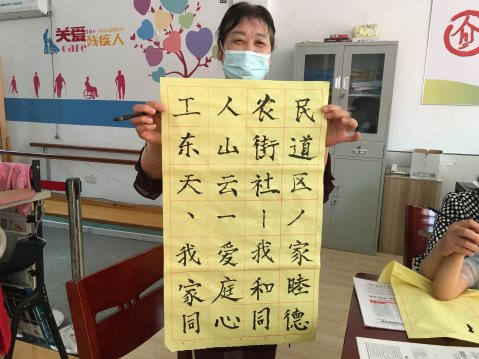 关爱 the disabled
care 残疾人
工人农民
东山街道
天云社区
丶一丨丿
我爱我家
家庭和睦
同心同德